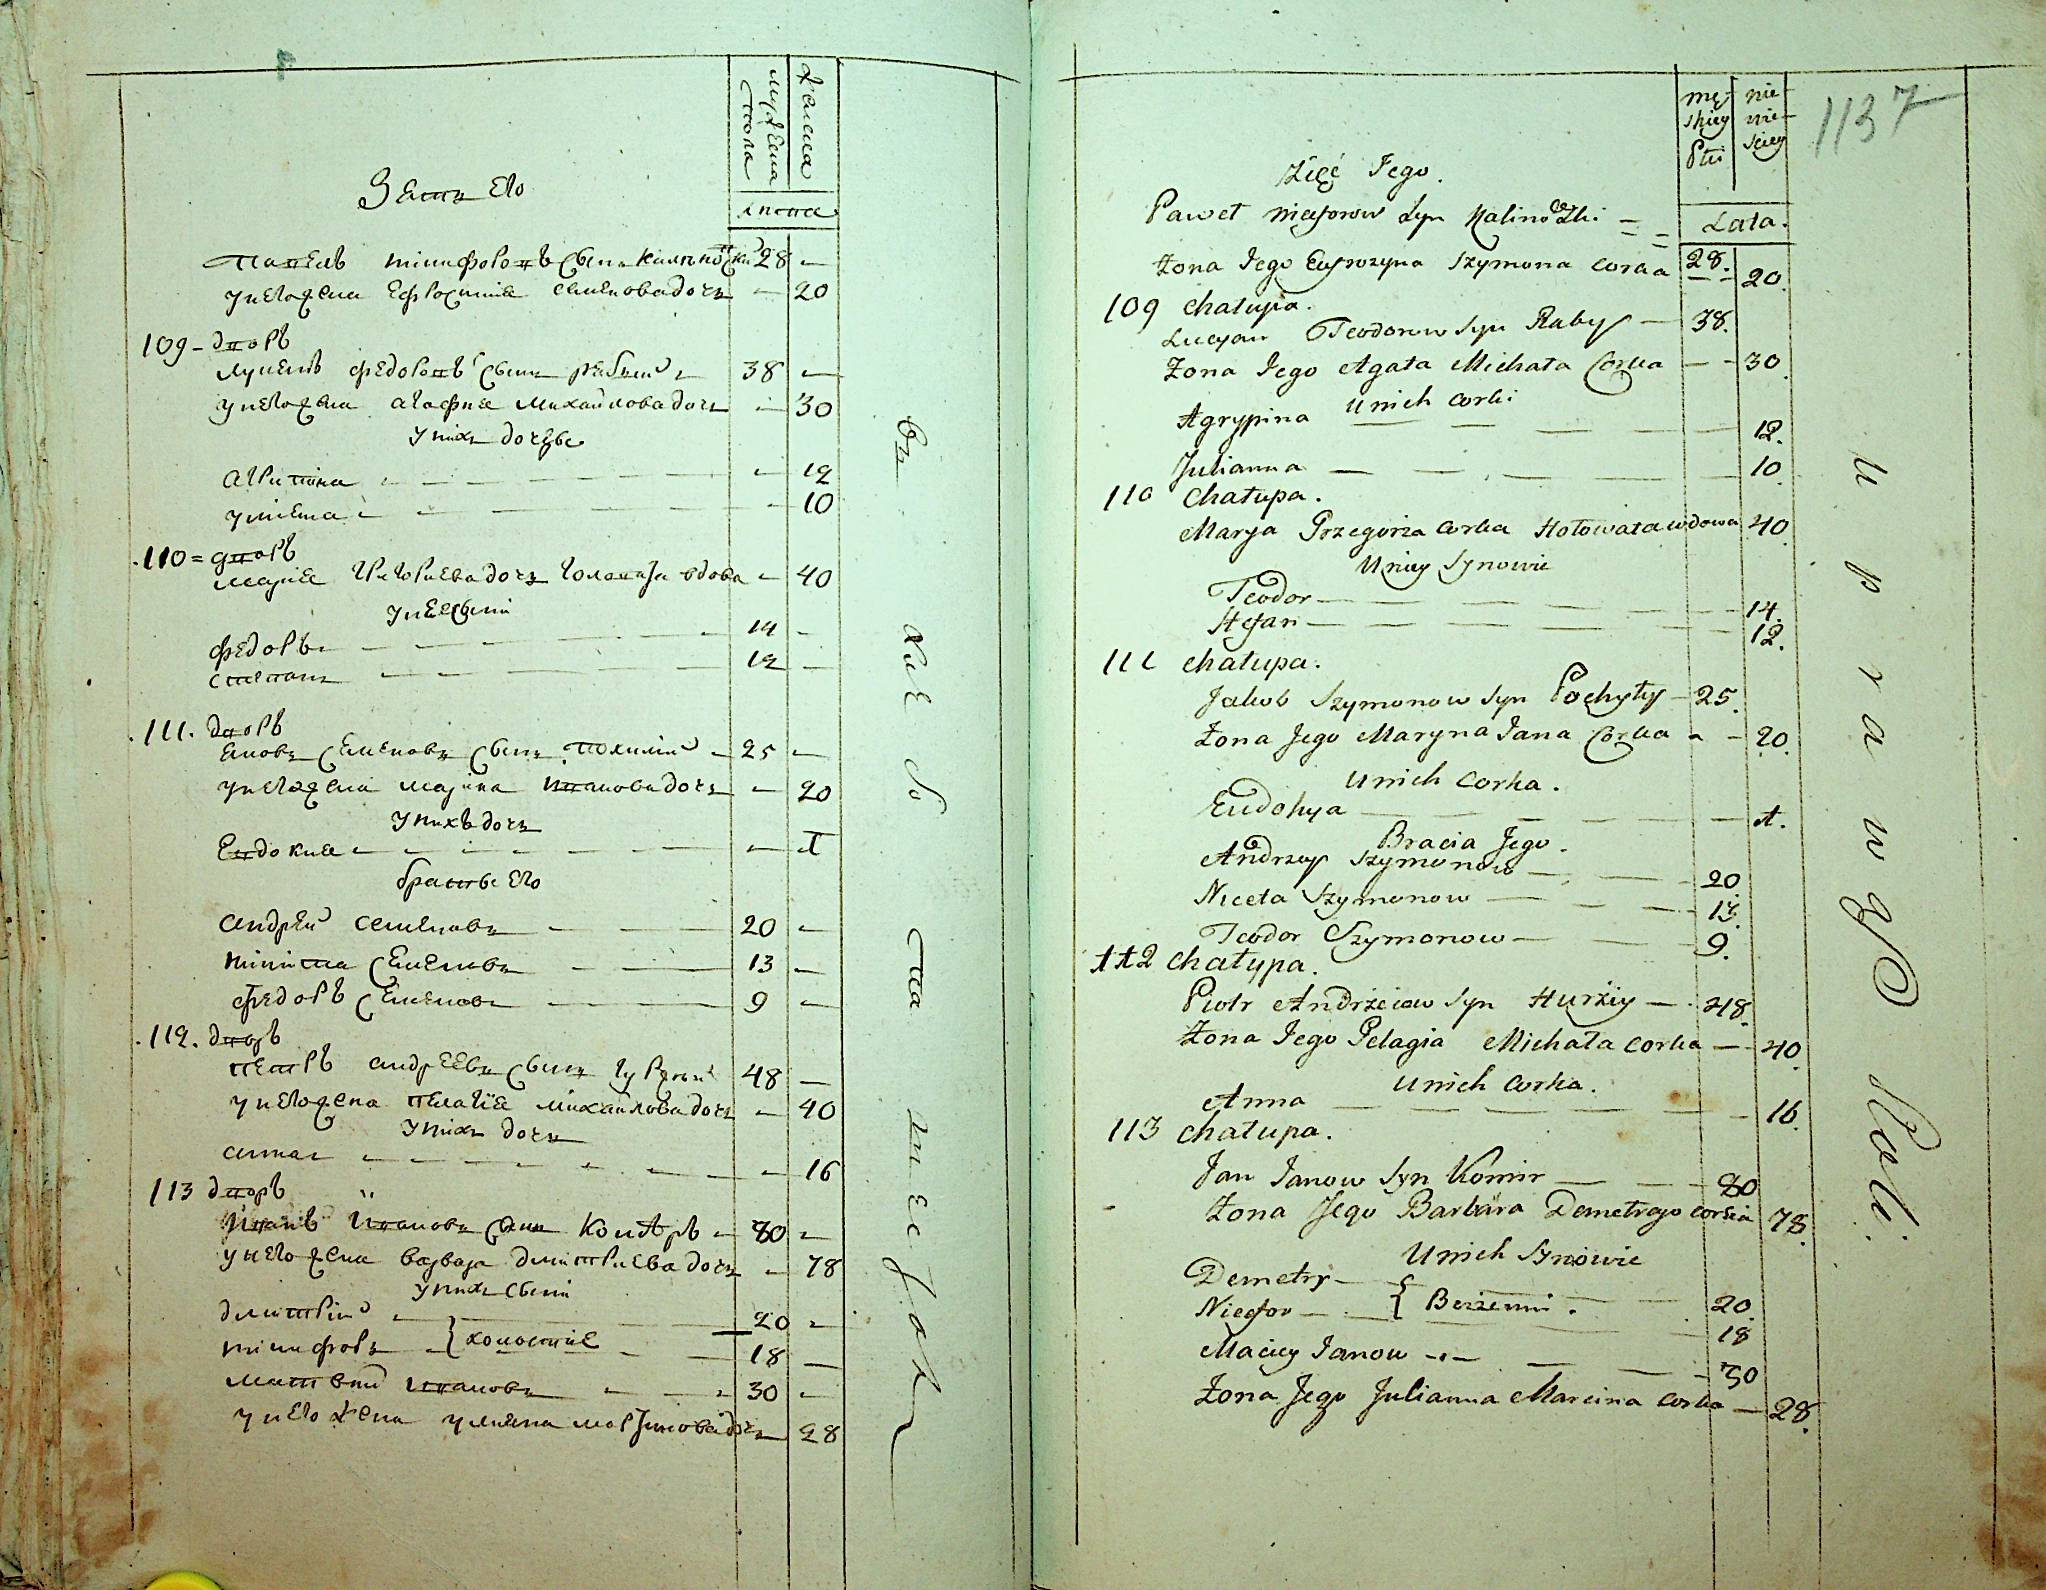 мужеска
пола
женска
лѣта
Зать его
Павелъ Никифоровъ сынъ Калиновскій 28 —
у него жена Ефросиніа Семенова дочь — 20
109 – дворъ
Лукенъ Федоровъ сынъ Рабый 38 —
у него жена Агафиа Михайлова дочь — 30
у нихъ дочери
Агрипина — 12
Улиана — 10
110 = дворъ
Мариа Григориева дочь Головата вдова — 40
у нее сыни
Федоръ 14 —
Степанъ 12 —
111. дворъ
Яковъ Семеновъ сынъ Похилий 25 —
у него жена Марина Иванова дочь — 20
у нихъ дочь
Евдокиа — 1
братьи его
Андрей Семеновъ 20 —
Никита Семеновъ 13 —
Федоръ Семеновъ 9 —
112. дворъ
Петръ Андреевъ сынъ Гуржий 48 —
у него жена Пелагіа Михайлова дочь — 40
у нихъ дочь
Анна — 16
113 дворъ
Иванъ Ивановъ сынъ 80 —
у него жена Варвара Дмитриева дочь — 78
у нихъ сыни
Дмитрій 20 —
Никифоръ } холостиіе 18 —
Матвѣй Ивановъ 30 —
у него жена Улиана Мартинова дочь 28
1137
męskiey Płci
niewieściey
Lata.
Zięć Jego.
Paweł Nicyforow Syn Kalinowski = =
Żona Jego Eufrozyna Szymona corka 28. 20.
109 Chałupa.
Lucyan Teodorow Syn Rabyj — 38.
Żona Jego Agata Michała Corka — 30.
Unich Corki
Agrypina — 12.
Julianna — 10.
110 Chałupa.
Marya Grzegorza Corka Hołowata wdowa 40.
Uniey Synowie
Teodor — 14.
Stefan — 12.
111 Chałupa.
Jakob Szymonow Syn Pochyłyj — 25.
Żona Jego Maryna Jana Corka — 20.
Unich Corka.
Eudokya — 1.
Bracia Jego.
Andrzey Szymonow — 20.
Niceta Szymonow — 13.
Teodor Szymonow — 9.
112 Chałupa.
Piotr Andrzeiow Syn Hurżiy — 48.
Żona Jego Pelagia Michała corka — 40.
Unich Corka.
Anna — 16.
113 Chałupa.
Jan Janow Syn — 80
Żona Jego Barbara Demetrego corka 78.
Unich Synowie
Demetry — 20.
Nicefor — { Bezżenni. 18
Maciey Janow — 30
Żona Jego Julianna Marcina Corka — 28.